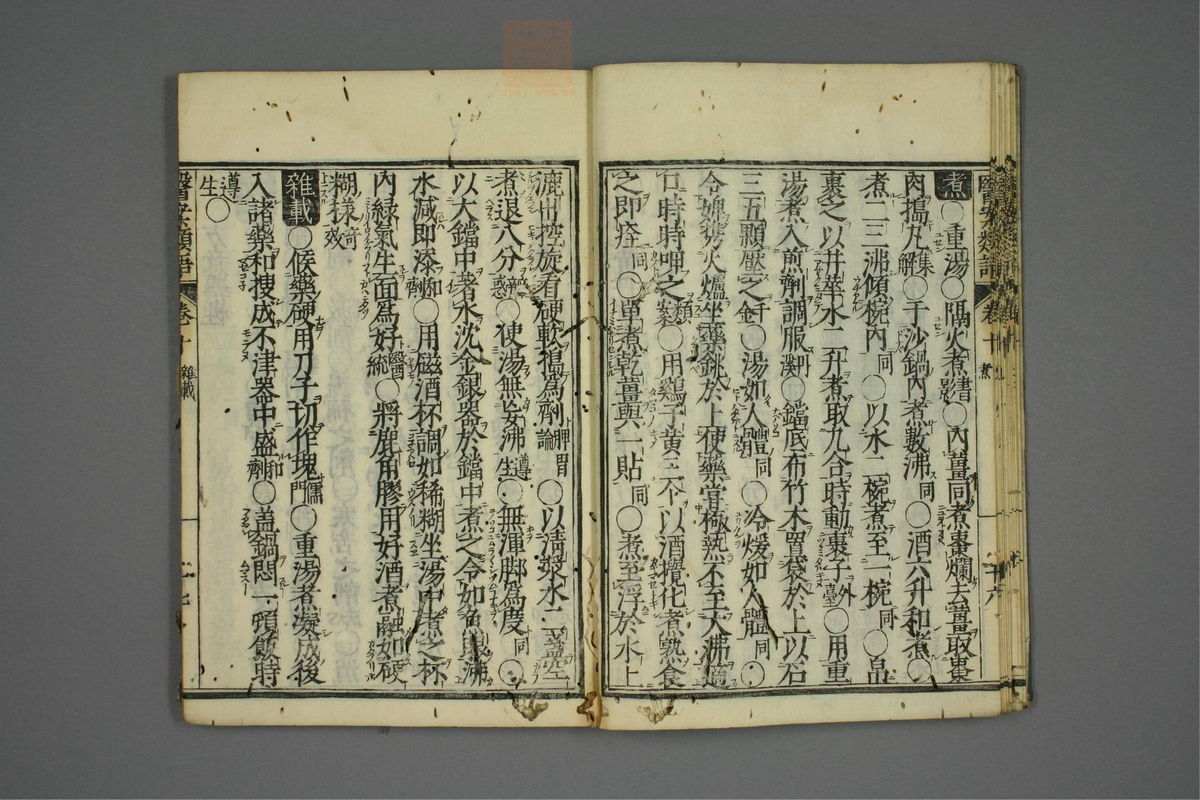 煮○重湯○隔火煮○內薑同煮棗爛去薑取棗
肉搗丸集解○于沙鍋內煮數沸同○酒六升和煮○
煮二三沸傾椀內同○以水二椀煮至一椀同○帛
裹之以井華水二升煮取九合時動裹子外臺○用重
湯煮入煎劑調服○鐺底布竹木置袋於上以石
三五顆壓之千金○湯如人體同○冷煖如人體同○
令婢執火爐坐藥銚於上使藥常極熱不至大沸適
口時時呷之類案○用鷄子黃三个以酒攪化煮熟食
之即痊同○單煮乾薑與一貼同○煮至浮於水上
漉出控旋看硬軟搗為劑脾胃論○以淸漿水二盞空
煮退八分○使湯無妄沸遵生○無渾脚為度同○
以大鐺中著水沈金銀器於鐺中煮之令如魚眼沸
水減即添和劑○用磁酒杯調如稀糊坐湯中煮之杯
內綠氣生面為好醫統○將鹿角膠用好酒煮融如硬
糊樣奇效
雜載○候藥硬用刀子切作塊儒門○重湯煮凝成後
入諸藥和搜成不津器中盛和劑○盖鍋悶一頓飯時
遵生○
卷十 雜載